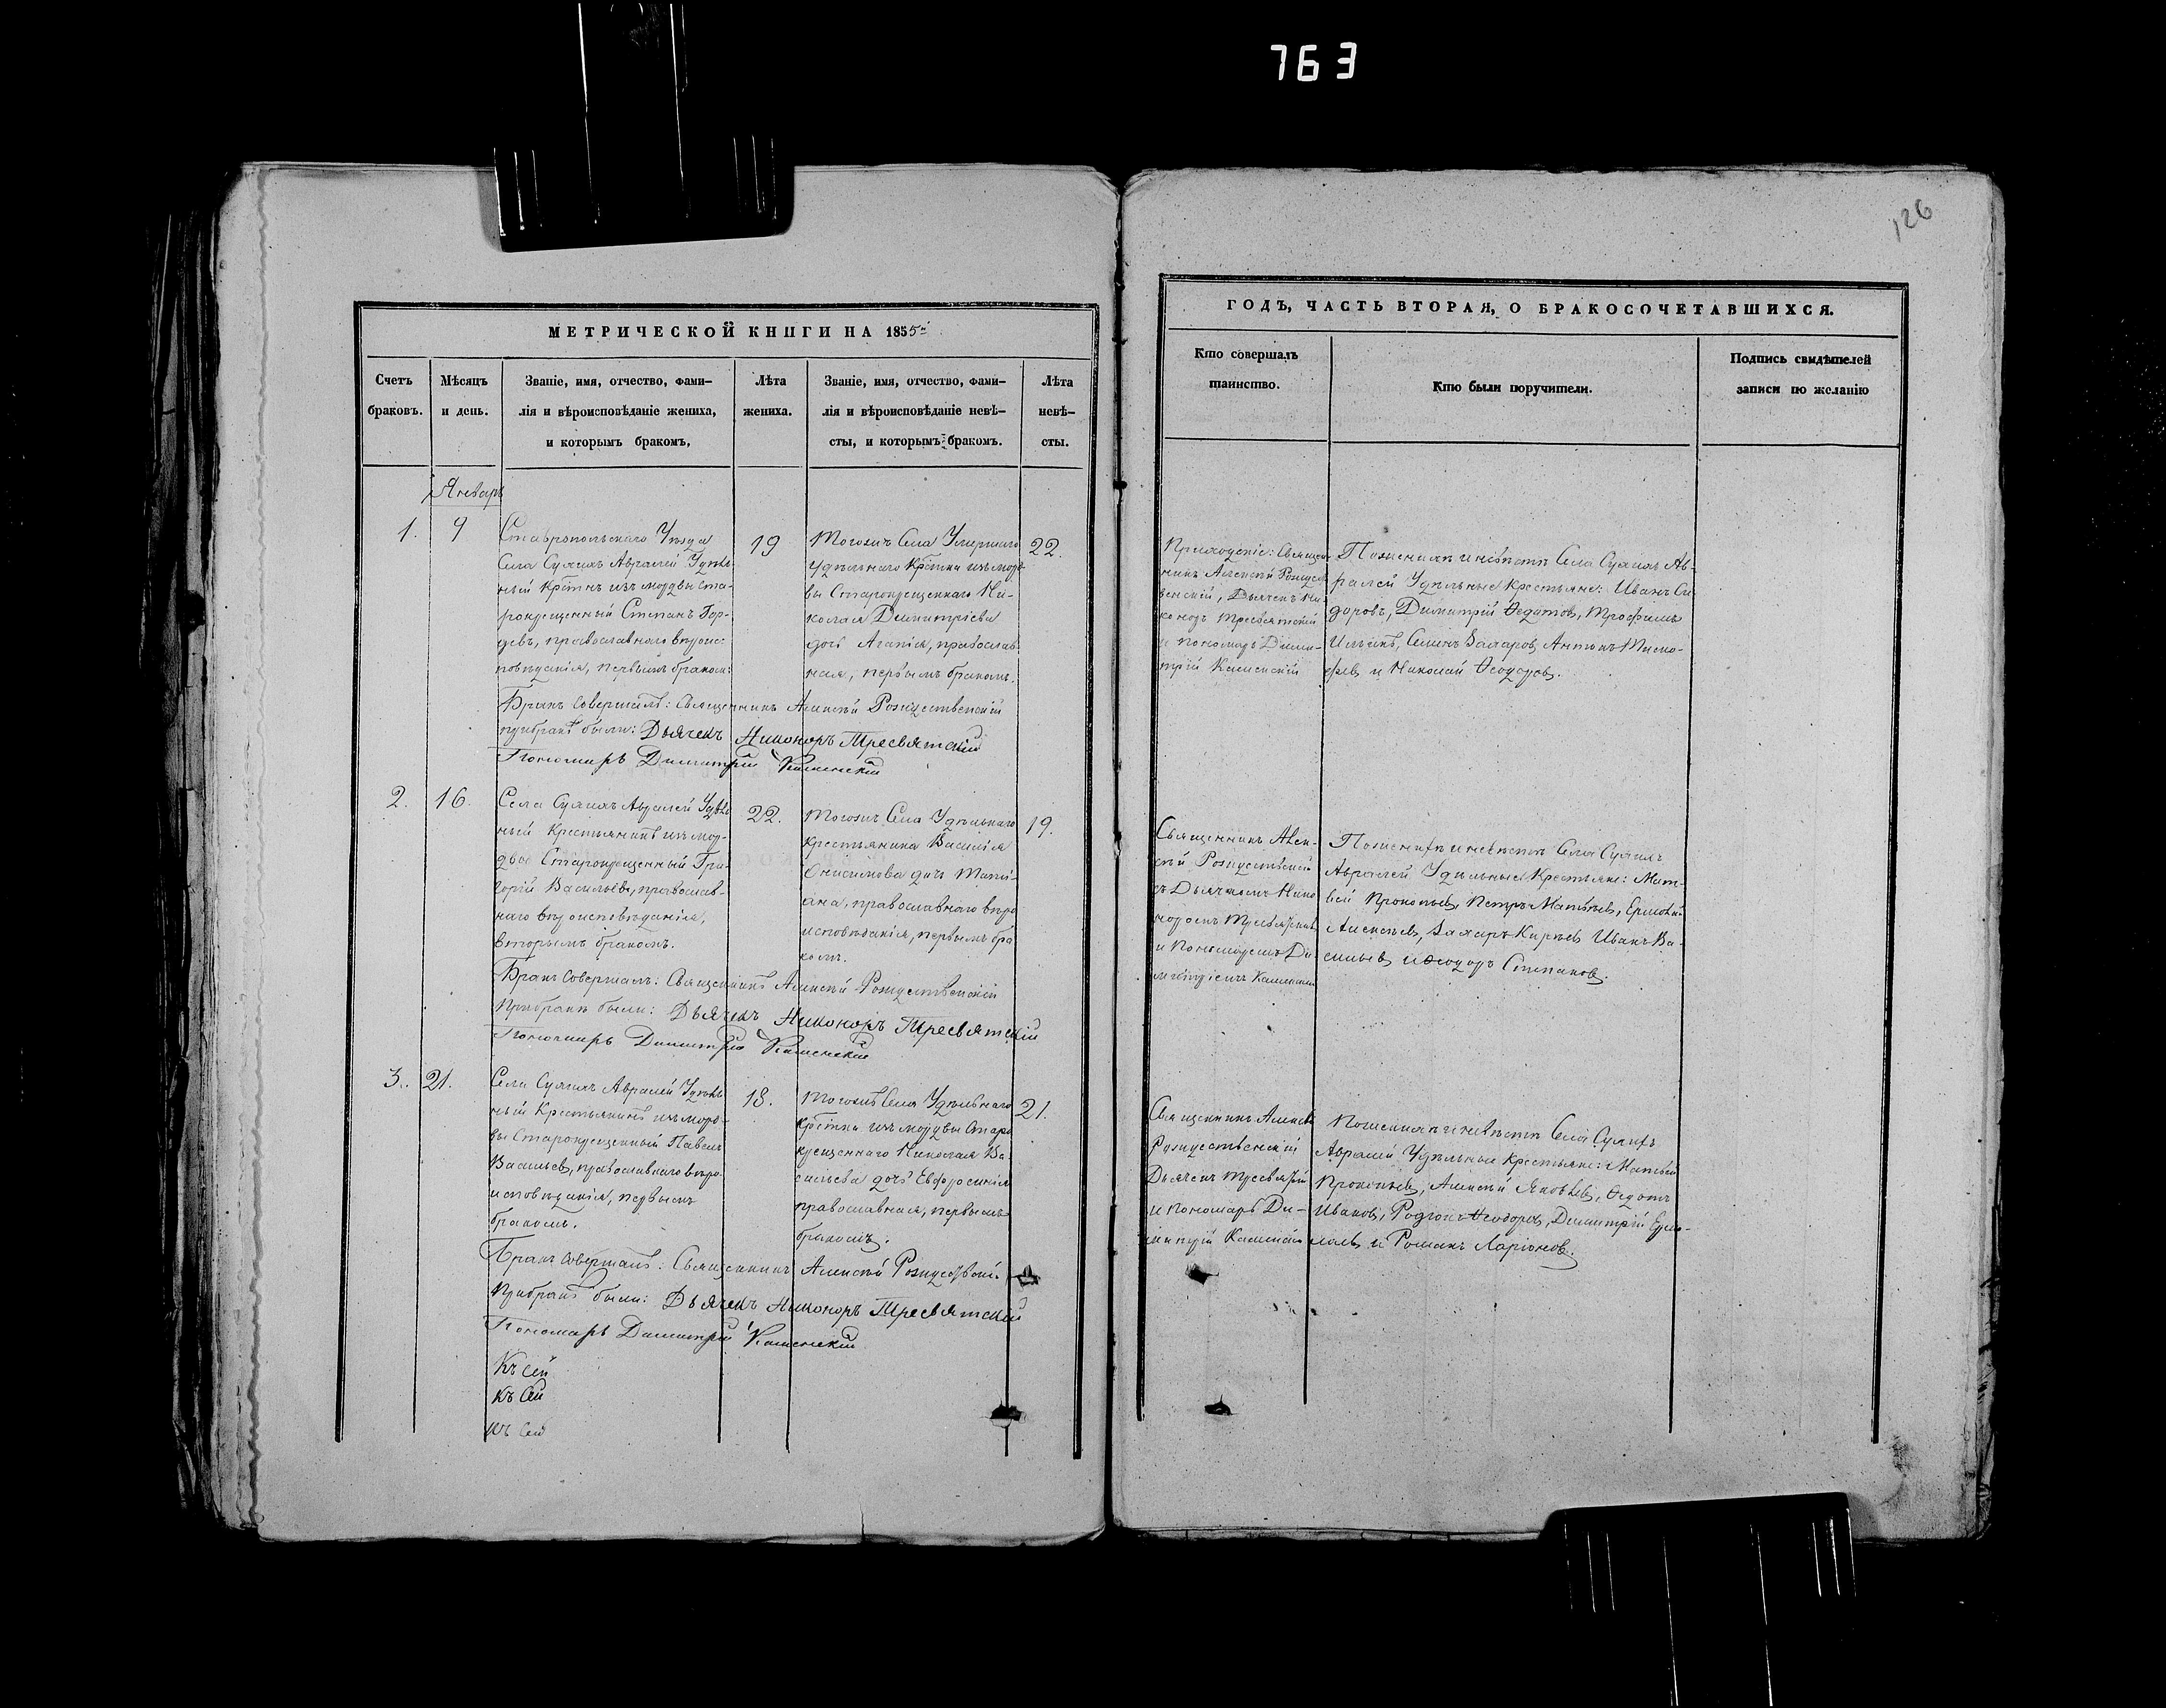 763
126
МЕТРИЧЕСКОЙ КНИГИ НА 1855й
Счетъ
браковъ.
Мѣсяцъ
и день.
Званіе, имя, отчество, фами-
лія и вѣроисповѣданіе жениха,
и которымъ бракомъ,
Лѣта
жениха.
Званіе, имя, отчество, фами-
лія и вѣроисповѣданіе невѣ-
сты, и которымъ бракомъ.
Лѣта
невѣ-
сты.
Январь
1.
9
Ставропольскаго Уѣзда
Села Авралей Удѣль-
ный Крѣтнъ изъ мордвы ста-
рокрещенный Степанъ
православнаго вѣроис-
повѣданія, первымъ бракомъ:
19
Тогожъ Села Умершаго
Удѣльнаго изъ морд-
вы Старокрещеннаго Ни-
колая Димитріева
дочь Агапія, православ-
ная, первымъ бракомъ.
22.
Бракъ совершалъ: Священникъ Алексѣй Рождественскій
при бракѣ были: Дьячекъ Никоноръ Тресвятскій
Пономарь Димитрій Каменскій
2.
16.
Села Авралей Удѣль-
ный Крестьянинъ изъ мор-
двы Старокрещенный Гри-
горій Васильевъ, православ-
наго вѣроисповѣданія,
вторымъ бракомъ.
22.
Тогожъ Села Удѣльнаго
крестьянина Василія
Онисимова дочь Тати-
ана, православнаго вѣро
исповѣданія, первымъ бра
комъ.
19.
Бракъ совершалъ: Священникъ Алексѣй Рождественскій
При бракѣ были: Дьячекъ Никоноръ Тресвятскій
Пономарь Димитрій Каменскій
3.
21.
Села Авралей Удѣль
ный Крестьянинъ изъ морд-
вы Старокрещенный Павелъ
Васильевъ, православнаго вѣро-
исповѣданія, первымъ
бракомъ.
18.
Тогожъ Села Удѣльнаго
изъ мордвы Старо
крещеннаго Николая Ва-
сильева дочь Евфросинія
православная, первымъ
бракомъ.
21.
Бракъ совершалъ: Священникъ Алексѣй
При бракѣ были: Дьячекъ Никоноръ Тресвятскій
Пономарь Димитрій Каменскій
Къ сей
Къ сей
Къ сей
ГОДЪ, ЧАСТЬ ВТОРАЯ, О БРАКОСОЧЕТАВШИХСЯ.
Кто совершалъ
таинство.
Кто были поручители.
Подпись свидѣтелей
записи по желанію
Приходскіе: Священ-
никъ Алексѣй Рождест-
венскій, Дьячекъ Ни-
коноръ Тресвятскій
и пономарь Дими-
трій Каменскій
По женихѣ и невѣстѣ Села Ав-
ралей Удѣльные крестьяне: Иванъ Си
доровъ, Димитрій Ѳедотовъ, Трофимъ
Семенъ Захаровъ, Антонъ Тимо-
фѣевъ и Николай Ѳеодоровъ.
Священникъ Алек-
сѣй Рождественскій
съ Дьячкомъ Нико
норомъ
и Пономаремъ Ди
митріемъ Каменскимъ
По женихѣ и невѣстѣ Села
Авралей Удѣльные Крестьяне: Мат-
вей Прокопьевъ, Петръ Матвѣевъ,
Алексѣевъ, Захаръ Иванъ Ва-
сильевъ и Ѳеодоръ Степановъ.
Священникъ Алексѣй
Рождественскій
Дьячекъ Тресвятскій
и пономарь Ди-
митрій Каменскій
По женихѣ и невѣстѣ Села
Авралей Удѣльные крестьяне: Матвей
Прокопьевъ, Алексѣй Яковлевъ, Ѳедотъ
Ивановъ, Родіонъ Ѳеодоровъ, Димитрій Ермо-
лаевъ и Романъ Ларіоновъ.